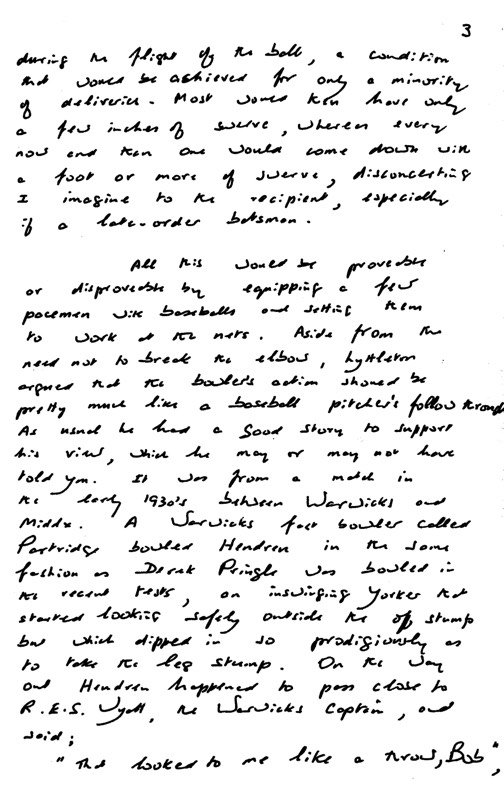 3
during the flight of the ball, a condition
that would be achieved for only a minority
of deliveries. Most would then have only
a few inches of swerve, whereas every
now and then one would come down with
a foot or more of swerve, disconcerting
I imagine to the recipient, especially
if a late-order batsman.
All this would be proveable
or disproveable by equipping a few
pacemen with baseballs and setting them
to work at the nets. Aside from the
need not to break the elbow, Lyttleton
argued that the bowler's action should be
pretty much like a baseball pitcher's follow through
As usual he had a good story to support
his view, which he may or may not have
told you. It was from a match in
the early 1930's between Warwicks and
Middx. A Warwicks fast bowler called
Partridge bowled Hendren in the same
fashion as Derek Pringle was bowled in
the recent tests, an inswinging Yorker that
started looking safely outside the off stump
but which dipped in so prodigiously as
to take the leg stump. On the way
out Hendren happened to pass close to
R.E.S. Wyatt, the Warwicks Captain, and
said;
"That looked to me like a throw, Bob",